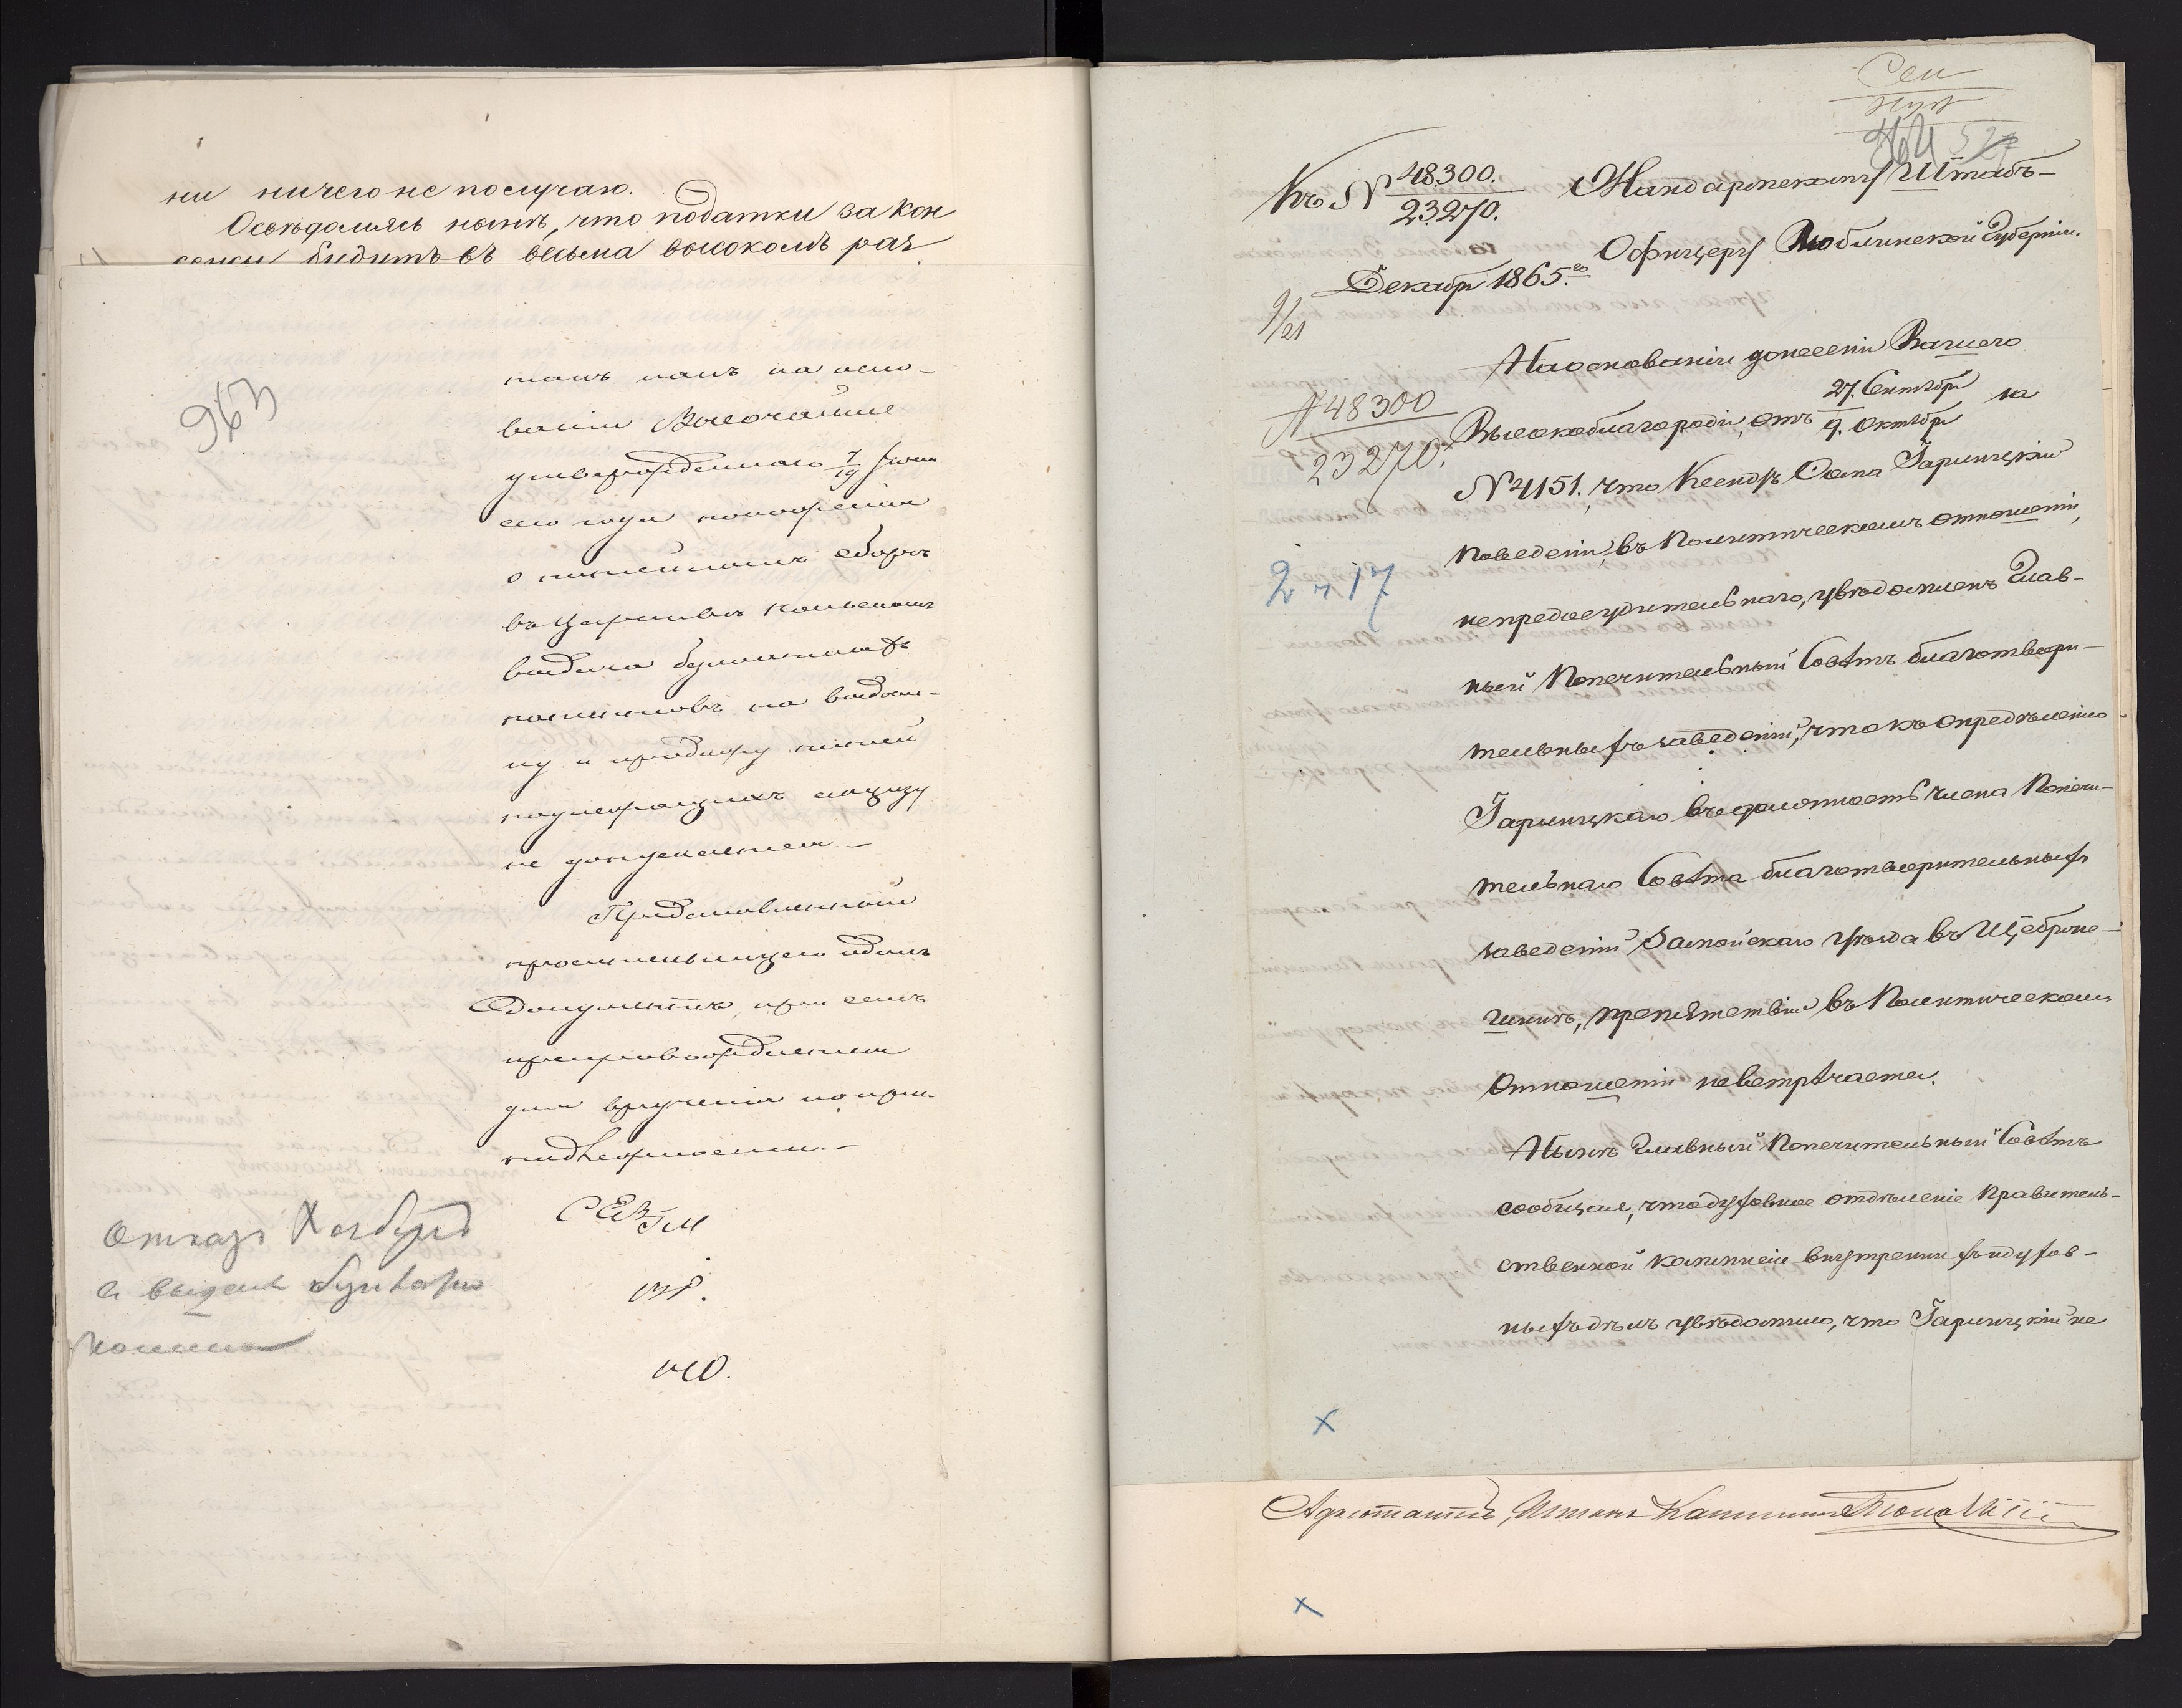 ни ничего не получаю.
Освѣдомляясь нынѣ, что податки за кон
сенсы будутъ въ весьма высокомъ раз
963
такъ какъ на осно-
ваніи Высочайше
утвержденнаго 7/19 Іюня
сего года положенія
о питейномъ сборѣ
въ Царствѣ Польскомъ
выдача безплатныхъ
патентовъ на выдѣл-
ку и продажу питей
подлежащихъ акцизу
не допускается. —
Представленный
просительницею одинъ
документъ при семъ
препровождается
для врученія по при-
надлежности. —
Отказъ
въ выдачѣ
Сен
964
Къ № 48.300. / 23270. Жандармскому Штабъ-
Офицеру Люблинской Губерніи.
Декабря 1865го
9/21
На основаніи донесенія Вашего
№ 48300 / 23270.
Высокоблагородія, отъ 27. Сентября / 9. Октября за
№ 4151, что Ксендзъ Осипъ Гарлицкій
поведенія, въ Политическомъ отношеніи,
2 ч 17
непредосудительнаго, увѣдомленъ Глав-
ный Попечительный Совѣтъ благотвори-
тельныхъ заведеній, что къ опредѣленію
Гарлицкаго въ должность члена Попечи-
тельнаго Совѣта благотворительныхъ
заведеній Замойскаго уѣзда въ Щебрже-
шинѣ, препятствія въ Политическомъ
Отношеніи невстрѣчается.
Нынѣ Главный Попечительный Совѣтъ
сообщилъ, что духовное отдѣленіе Правитель-
ственной коммисіи внутреннихъ и духов-
ныхъ дѣлъ увѣдомило, что Гарлицкій не
х
Адъютантъ, Штабъ Капитанъ
х